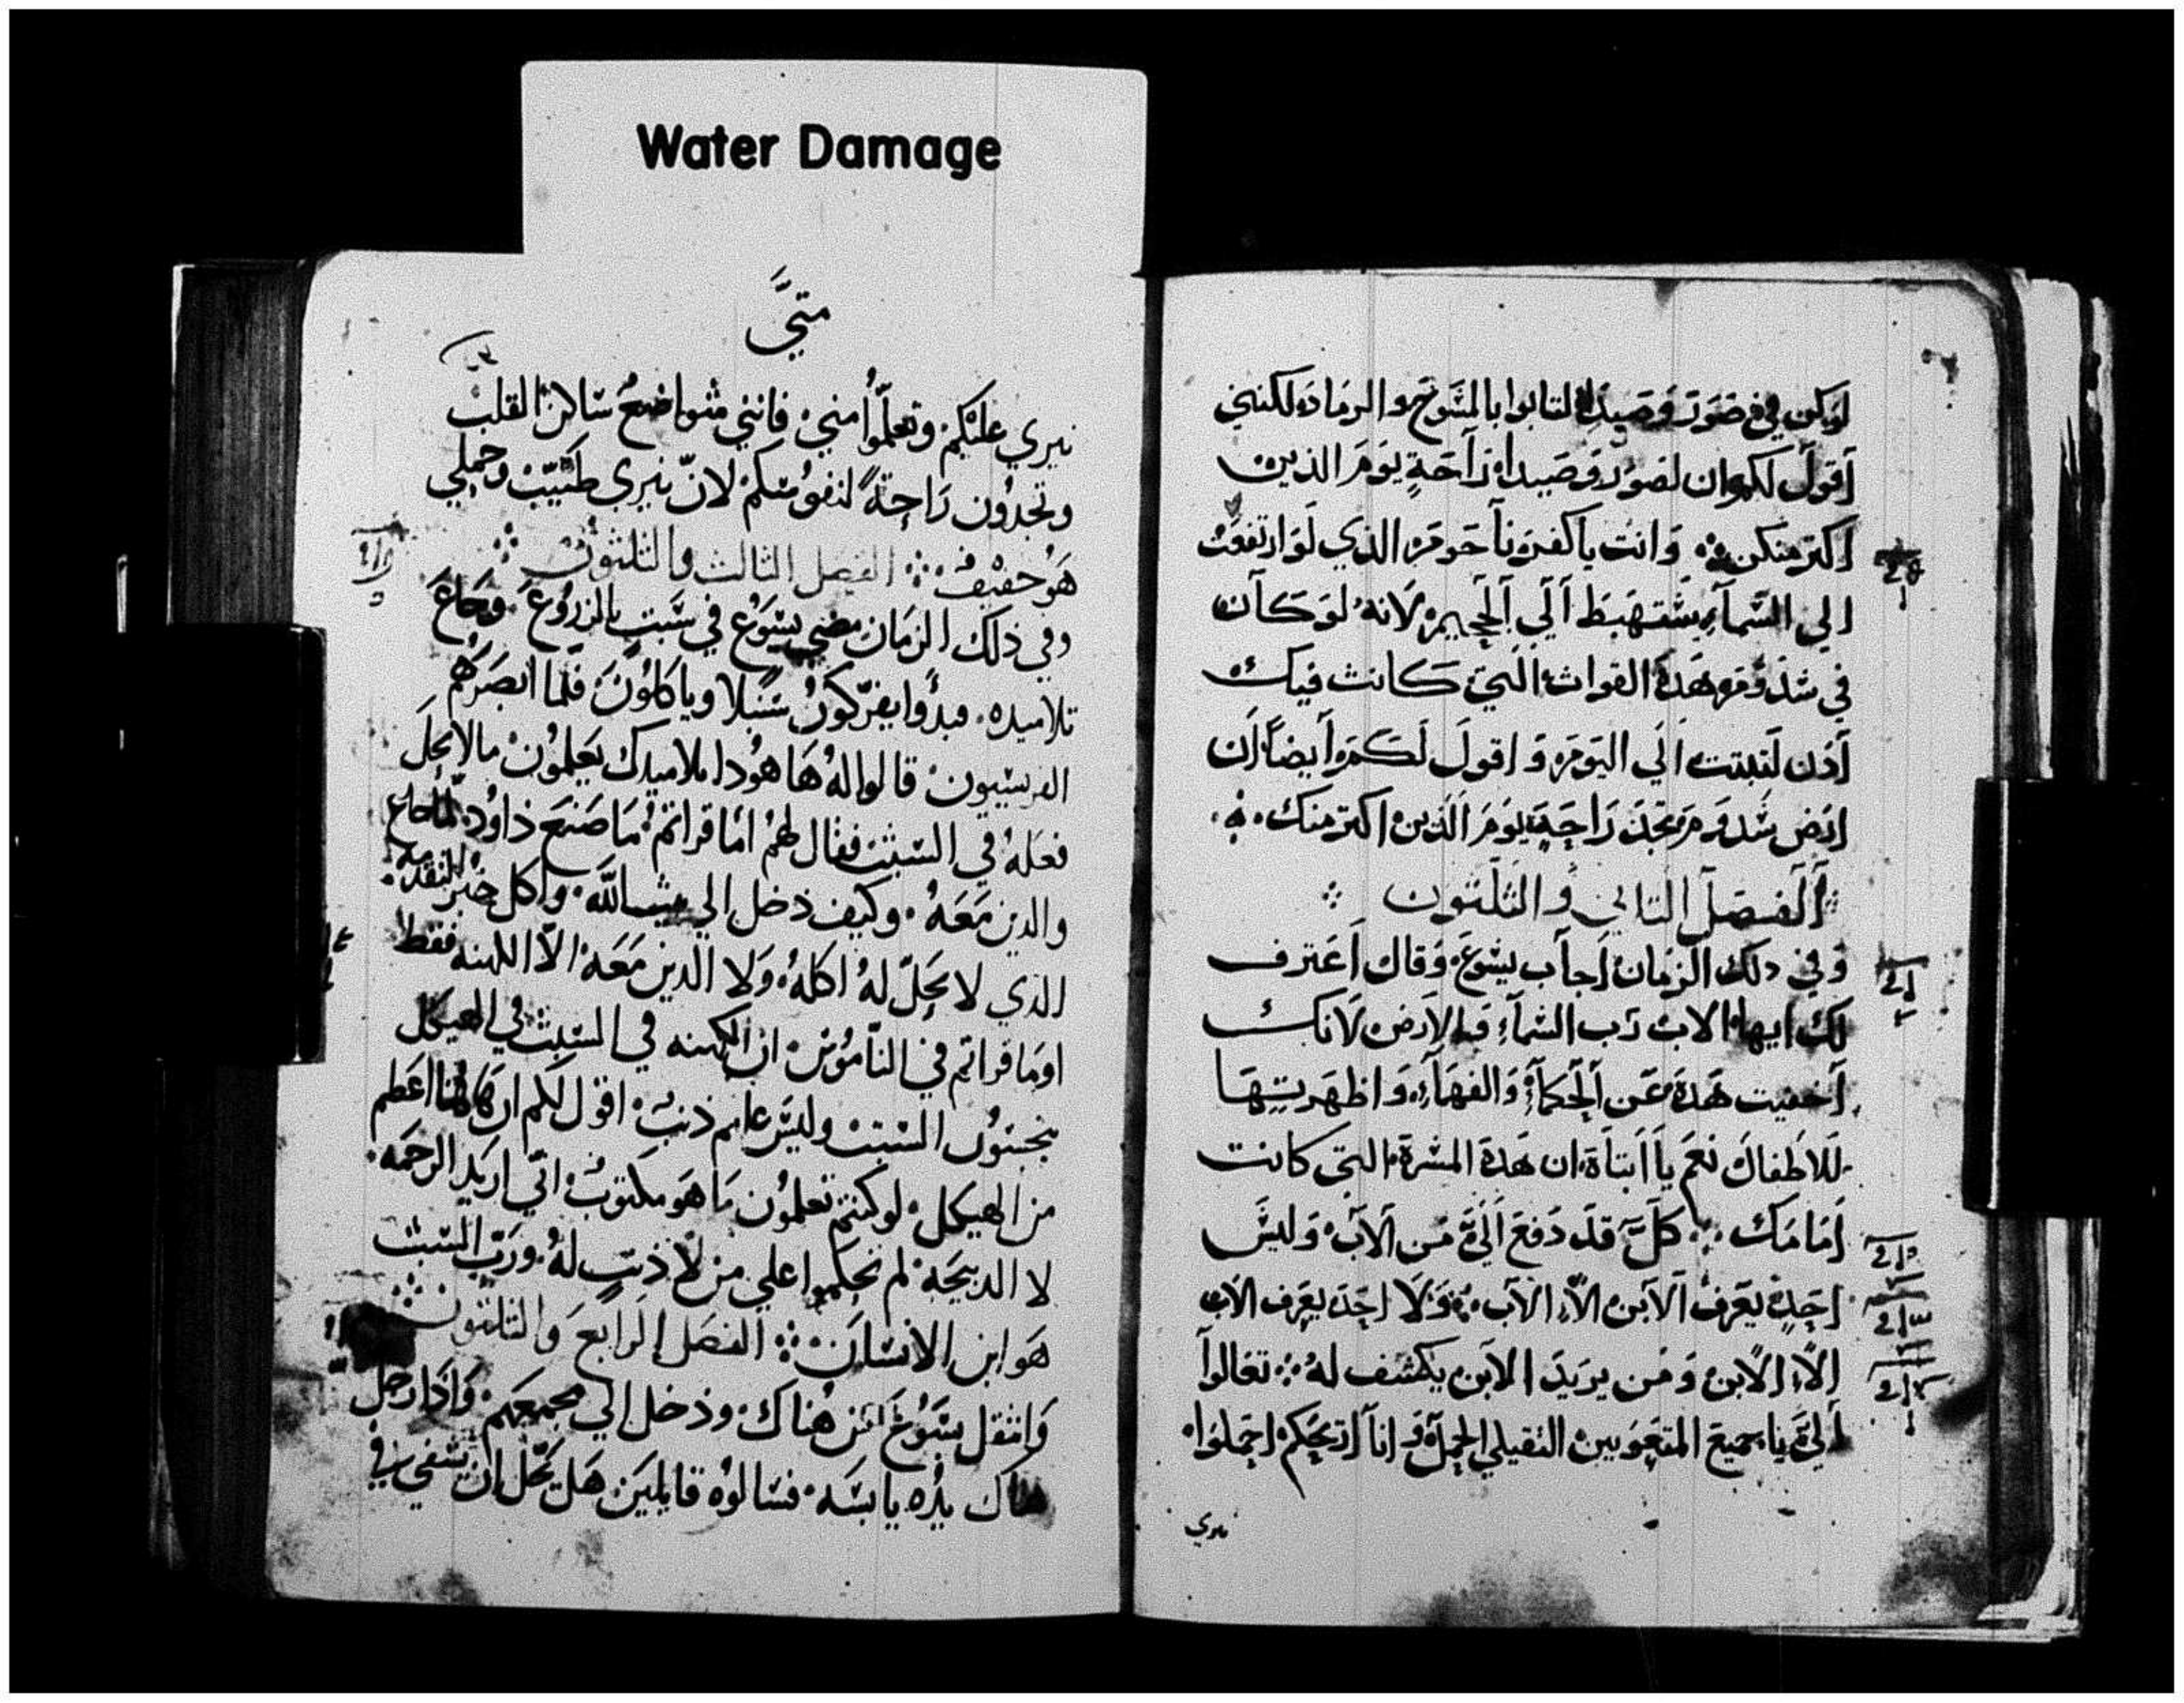 Water Damage
لو يكن في صور وصيدا لتابوا بالمسوح والرماد لكنني
أقول لكم ان لصور وصيدا راحة يوم الدين
اكتر منكن وانت يا كفرناحوم الذي لو ارتفعت
الي السمآء ستهبط ألي ألجحيم لانه لو كآن
في سدوم هده القوات التي كانت فيك
أدن لتبتت الي اليوم واقول لكم أيضا ان
ارض سدوم تجد راحة يوم الدين اكتر منك
ألفصل التاني والتلتون
وفي دلك الزمان أجآب يسوع وقال أعترف
لك ايها الاب رب السمآء والارض لانك
أخفيت هده عن ألحكمآء والفهمآء واظهرتها
للاطفال نعم يا ابتاة ان هده المسرة التي كانت
أمامك كل قد دفع الي من الاب وليس
احد يعرف الابن الا الاب ولا احد يعرف الاب
الا الابن ومن يريد الابن يكشف له تعالوا
ألي يا جميع المتعوبين التقيلي الحمل وانا أريحكم احملوا
نيري
متي
نيري عليكم وتعلموا مني فانني متواضع ساكن القلب
وتجدون راحة لنفوسكم لان نيري طيب وحملي
هو خفيف الفصل التالت والتلتون
وفي ذلك الزمان مضي يسوع في سبت بالزروع وجاع
تلاميده فبدوا يفركون سنبلا وياكلون فلما ابصرهم
الفريسيون قالوا له ها هودا تلاميدك يعملون ما لا يحل
فعله في السبت فقال لهم اما قراتم ما صنع داود لما جاع
والدين معه وكيف دخل الي بيت الله واكل خبز التقدمه
الدي لا يحل له اكله ولا الدين معه الا الكهنه فقط
اوما قراتم في الناموس ان الكهنه في السبت في الهيكل
ينجسون السبت وليس عليهم ذنب اقول لكم ان هاهنا اعظم
من الهيكل لو كنتم تعلمون ما هو مكتوب اني اريد الرحمه
لا الدبيحه لم تحكموا علي من لا ذنب له ورب السبت
هو ابن الانسان الفصل الرابع والتلتون
وانتقل يسوع من هناك ودخل الي مجمعهم واذا رجل
هناك يده يابسه فسالوه قايلين هل يحل ان يشفي في